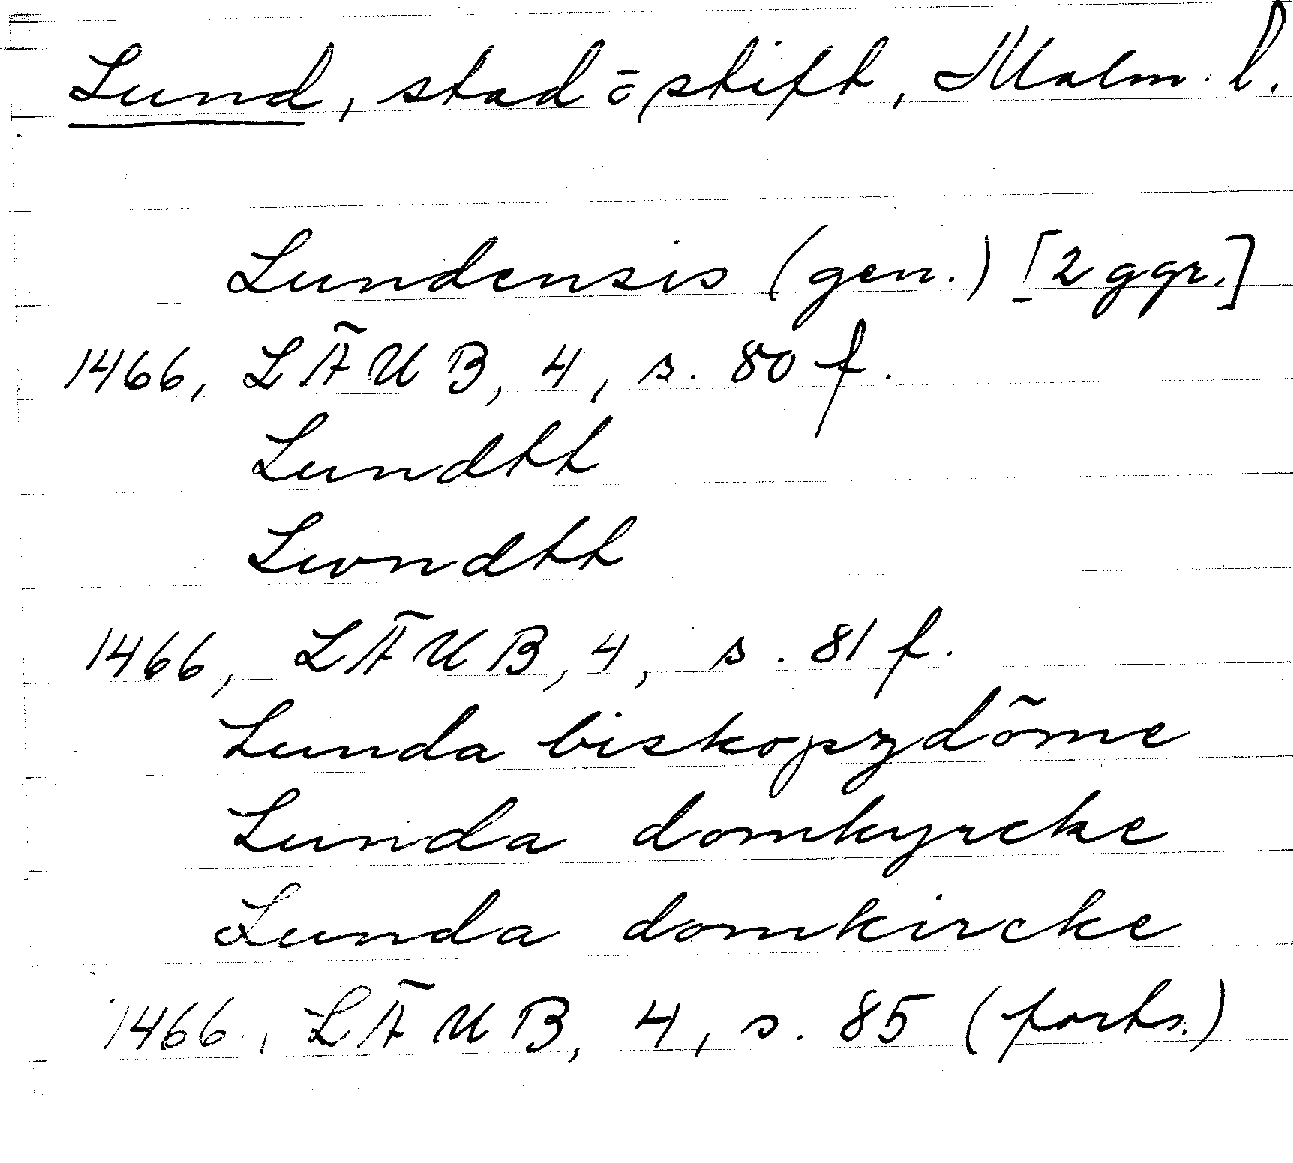 Lund, stad o stift, Malm. l.
Lundensis (gen.) [2 ggr.]
1466, LÄUB, 4, s. 80 f.
Lundtt
Lwndtt
1466, LÄUB, 4, s. 81 f.
Lunda biskopzdöme
Lunda domkyrcke
Lunda domkircke
1466, LÄUB, 4, s. 85 (forts.)